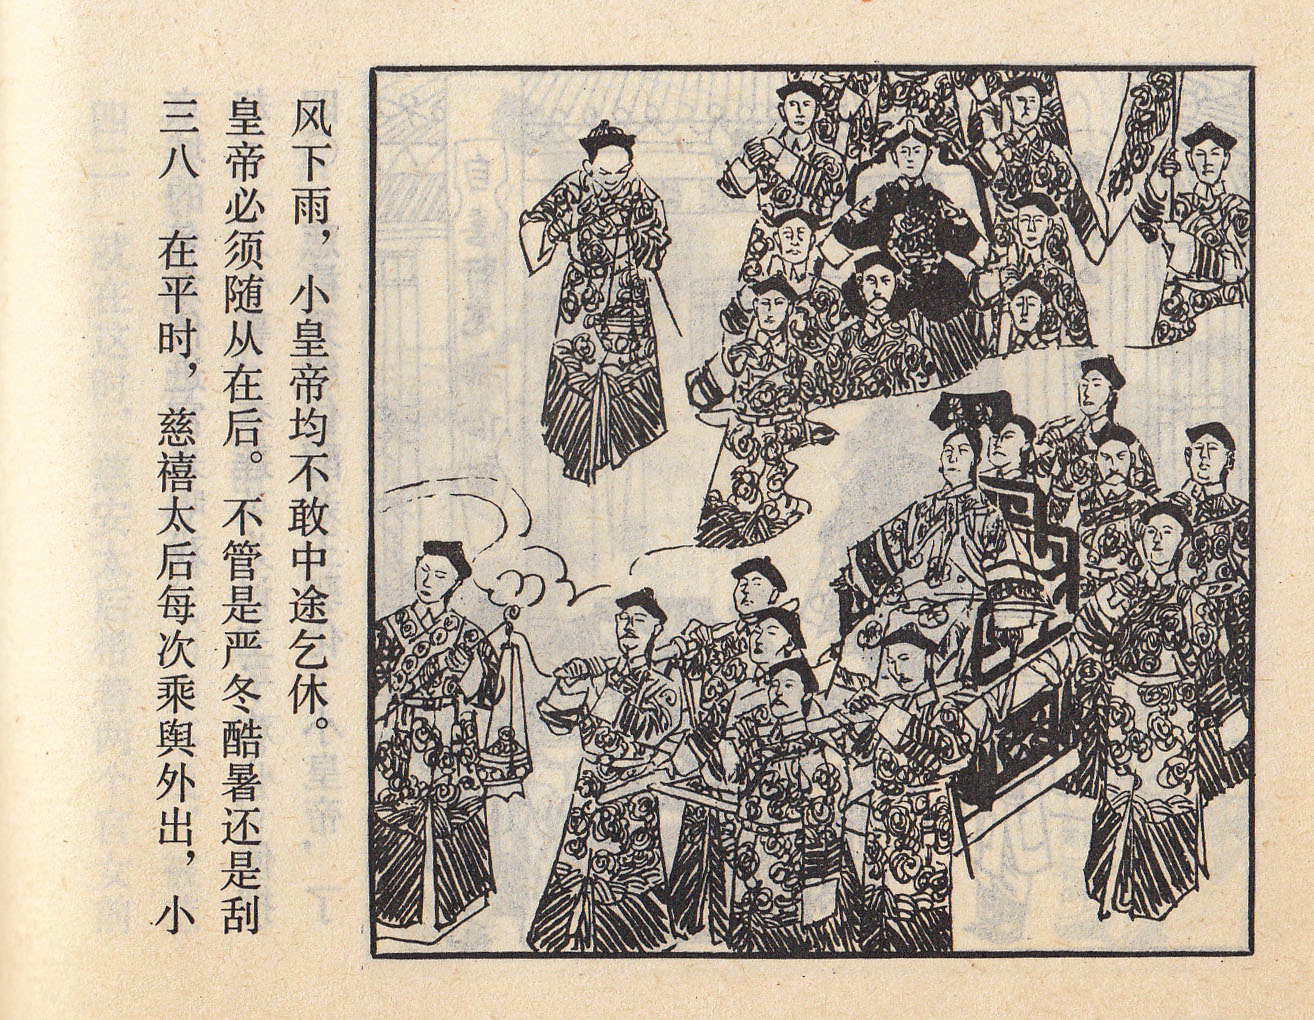 三八 在平时，慈禧太后每次乘舆外出，小
皇帝必须随从在后。不管是严冬酷暑还是刮
风下雨，小皇帝均不敢中途乞休。